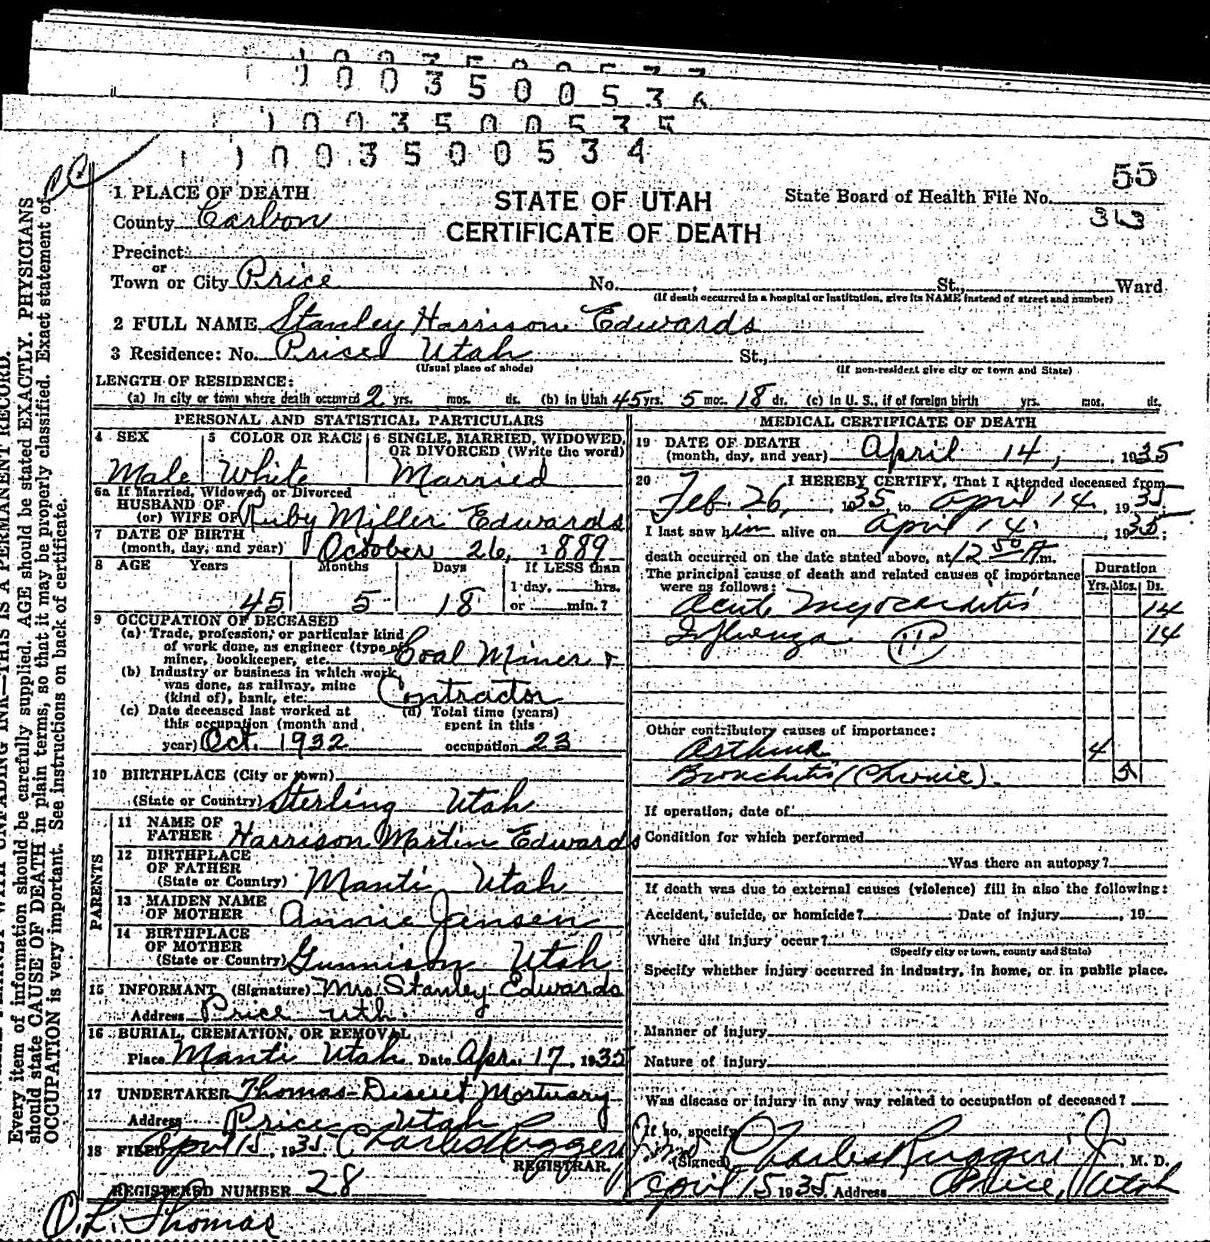 1003500536
1003500535
1003500534
55
1 PLACE OF DEATH
STATE OF UTAH
CERTIFICATE OF DEATH
State Board of Health File No.
County Carbon
Precinct
or
Town or City Price No. St., Ward
(If death occurred in a hospital or institution, give its NAME instead of street and number)
2 FULL NAME Stanley Harrison Edwards
3 Residence: No. Price Utah St.,
(Usual place of abode) (If non-resident give city or town and State)
LENGTH OF RESIDENCE:
(a) In city or town where death occurred 2 yrs. mos. ds. (b) in Utah 45 yrs. 5 mos. 18 ds. (c) In U. S., if of foreign birth yrs. mos. ds.
PERSONAL AND STATISTICAL PARTICULARS
4 SEX 5 COLOR OR RACE 6 SINGLE, MARRIED, WIDOWED, OR DIVORCED (Write the word)
Male White Married
6a If Married, Widowed, or Divorced
HUSBAND OF
(or) WIFE OF Ruby Miller Edwards
7 DATE OF BIRTH
(month, day, and year) October 26, 1889
8 AGE Years Months Days If LESS than
1 day, hrs.
45 5 18 or min.?
9 OCCUPATION OF DECEASED
(a) Trade, profession, or particular kind
of work done, as engineer (type of
miner, bookkeeper, etc. Coal Miner +
(b) Industry or business in which work
was done, as railway, mine
(kind of), bank, etc. Contractor
(c) Date deceased last worked at (d) Total time (years)
this occupation (month and spent in this
year) Oct. 1932 occupation 23
10 BIRTHPLACE (City or town)
(State or Country) Sterling Utah
PARENTS
11 NAME OF
FATHER Harrison Martin Edwards
12 BIRTHPLACE
OF FATHER
(State or Country) Manti Utah
13 MAIDEN NAME
OF MOTHER Annie Jansen
14 BIRTHPLACE
OF MOTHER
(State or Country) Gunnison Utah
15 INFORMANT (Signature) Mrs Stanley Edwards
Address Price Utah
16 BURIAL, CREMATION, OR REMOVAL
Place Manti Utah Date Apr. 17. 1935
17 UNDERTAKER Thomas-Deseret Mortuary
Address Price Utah
18 FILED April 15, 1935 Charles Ruggeri
REGISTRAR.
REGISTERED NUMBER 28
O. L. Thomas
MEDICAL CERTIFICATE OF DEATH
19 DATE OF DEATH
(month, day, and year) April 14, 1935
20 I HEREBY CERTIFY, That I attended deceased from
Feb 26, 1935 to April 14, 1935
I last saw him alive on April 14, 1935;
death occurred on the date stated above, at 12 50 A. m.
The principal cause of death and related causes of importance
were as follows:
Duration
Yrs. Mos. Ds.
Acute Myocarditis 14
Influenza 14
Other contributory causes of importance:
Asthma 4
Bronchitis (Chronic)
If operation, date of
Condition for which performed
Was there an autopsy?
If death was due to external causes (violence) fill in also the following:
Accident, suicide, or homicide? Date of injury , 19
Where did injury occur?
(Specify city or town, county and State)
Specify whether injury occurred in industry, in home, or in public place.
Manner of injury
Nature of injury
Was disease or injury in any way related to occupation of deceased?
If so, specify
(Signed) Charles Ruggeri Jr M. D.
April 15 1935 Address Price, Utah
Every item of information should be carefully supplied. AGE should be stated EXACTLY. PHYSICIANS
should state CAUSE OF DEATH in plain terms, so that it may be properly classified. Exact statement of
OCCUPATION is very important. See instructions on back of certificate.